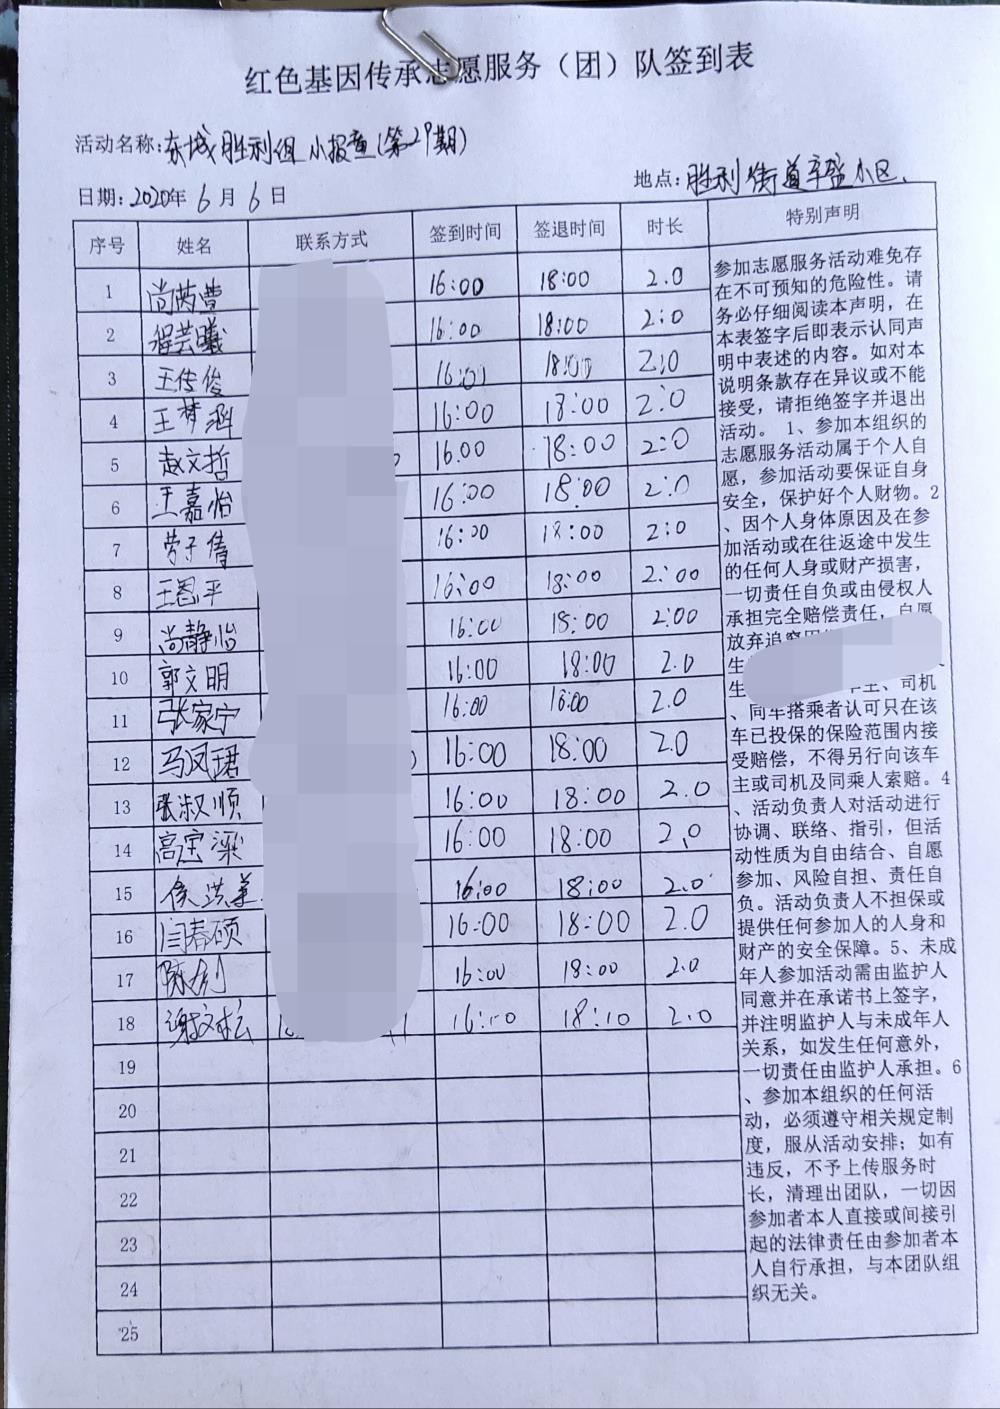 红色基因传承志愿服务（团）队签到表
活动名称:东城胜利组小报童(第29期)
日期:2020年6月6日
地点:胜利街道辛盛小区.
序号 姓名 联系方式 签到时间 签退时间 时长 特别声明
1 尚芮萱 16:00 18:00 2.0
2 程芸曦 16:00 18:00 2:0
3 王传俊 16:00 18:00 2:0
4 王梦涵 16:00 18:00 2:0
5 赵文哲 16:00 18:00 2:0
6 王嘉怡 16:00 18:00 2:0
7 劳子倩 16:00 18:00 2:0
8 王恩平 16:00 18:00 2:00
9 尚静怡 16:00 18:00 2:00
10 郭文明 16:00 18:00 2.0
11 张家宁 16:00 18:00 2.0
12 马凤珺 16:00 18:00 2.0
13 张淑顺 16:00 18:00 2.0
14 高宝深 16:00 18:00 2.0
15 侯洪 16:00 18:00 2.0
16 闫春硕 16:00 18:00 2.0
17 陈 16:00 18:00 2.0
18 谢文松 16:10 18:10 2.0
19
20
21
22
23
24
25
参加志愿服务活动难免存
在不可预知的危险性。请
务必仔细阅读本声明，在
本表签字后即表示认同声
明中表述的内容。如对本
说明条款存在异议或不能
接受，请拒绝签字并退出
活动。1、参加本组织的
志愿服务活动属于个人自
愿，参加活动要保证自身
安全，保护好个人财物。2
、因个人身体原因及在参
加活动或在往返途中发生
的任何人身或财产损害，
一切责任自负或由侵权人
承担完全赔偿责任，自愿
放弃追究
生
生 车主、司机
、同车搭乘者认可只在该
车已投保的保险范围内接
受赔偿，不得另行向该车
主或司机及同乘人索赔。4
、活动负责人对活动进行
协调、联络、指引，但活
动性质为自由结合、自愿
参加、风险自担、责任自
负。活动负责人不担保或
提供任何参加人的人身和
财产的安全保障。5、未成
年人参加活动需由监护人
同意并在承诺书上签字，
并注明监护人与未成年人
关系，如发生任何意外，
一切责任由监护人承担。6
、参加本组织的任何活
动，必须遵守相关规定制
度，服从活动安排；如有
违反，不予上传服务时
长，清理出团队，一切因
参加者本人直接或间接引
起的法律责任由参加者本
人自行承担，与本团队组
织无关。